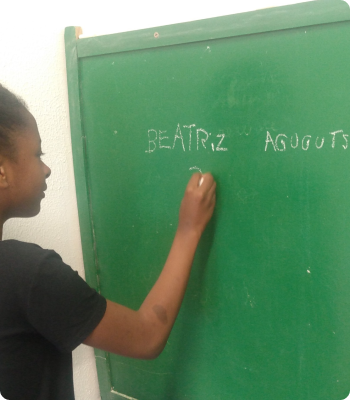 BEATRiZ AGUGUTS